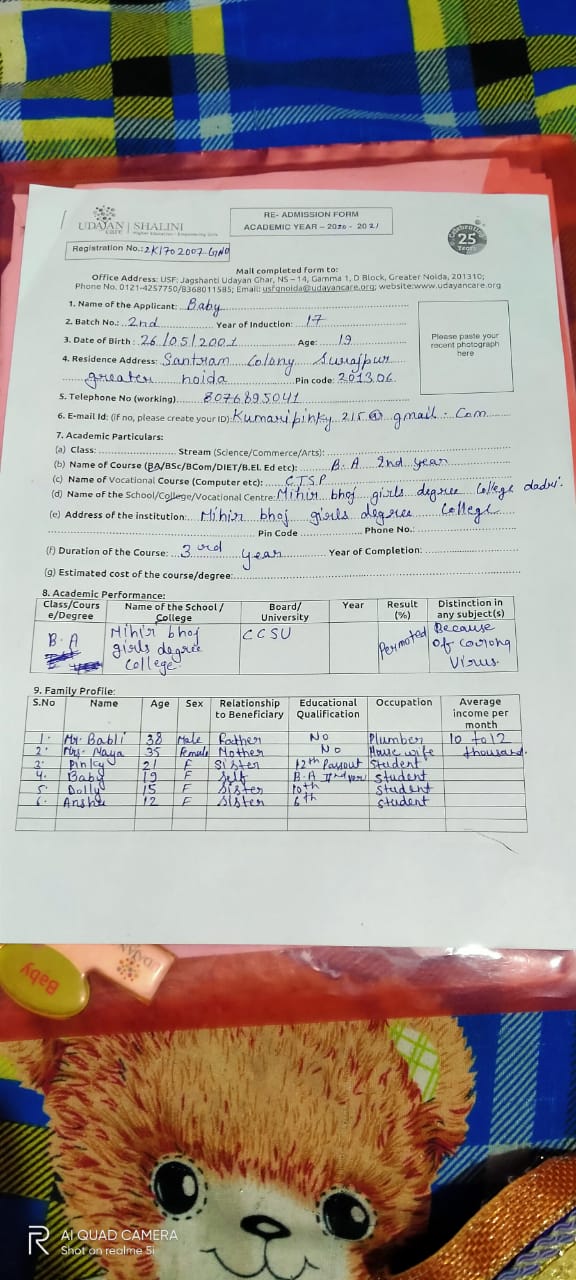 UDAYAN | SHALINI
care Higher Education - Empowering Girls
RE- ADMISSION FORM
ACADEMIC YEAR – 2020 - 2021
Celebrating 25 Years
Registration No.: 2K1702007-GND
Mail completed form to:
Office Address: USF: Jagshanti Udayan Ghar, NS – 14, Gamma 1, D Block, Greater Noida, 201310;
Phone No. 0121-4257750/8368011585; Email: usfgnoida@udayancare.org; website:www.udayancare.org
1. Name of the Applicant: Baby
2. Batch No.: 2nd Year of Induction: 17
3. Date of Birth: 26/05/2001 Age: 19
4. Residence Address: Santram Colony Surajpur
greater noida Pin code: 201306
Please paste your
recent photograph
here
5. Telephone No (working) 8076895041
6. E-mail Id: (if no, please create your ID) Kumaripinky 215@ gmail . Com
7. Academic Particulars:
(a) Class: Stream (Science/Commerce/Arts):
(b) Name of Course (BA/BSc/BCom/DIET/B.El. Ed etc): B.A 2nd year
(c) Name of Vocational Course (Computer etc): CTSP
(d) Name of the School/College/Vocational Centre: Mihir bhoj girls degree College dadri.
(e) Address of the institution: Mihir bhoj girls degree College
Pin Code Phone No.:
(f) Duration of the Course: 3rd year Year of Completion:
(g) Estimated cost of the course/degree:
8. Academic Performance:
Class/Cours e/Degree Name of the School / College Board/ University Year Result (%) Distinction in any subject(s)
B.A Mihir bhoj girls degree College. CCSU Permoted Because Of Corona Virus.
9. Family Profile:
S.No Name Age Sex Relationship to Beneficiary Educational Qualification Occupation Average income per month
1. Mr. Babli 38 Male Father No Plumber 10 to 12
2. Mrs. Maya 35 Female Mother No House wife thousand.
3. Pinky 21 F Sister 12th Passout Student
4. Baby 19 F Self B.A IInd year Student
5. Dolly 15 F Sister 10th Student
6. Anshu 12 F Sister 6th Student
Baby
R AI QUAD CAMERA
Shot on realme 5i